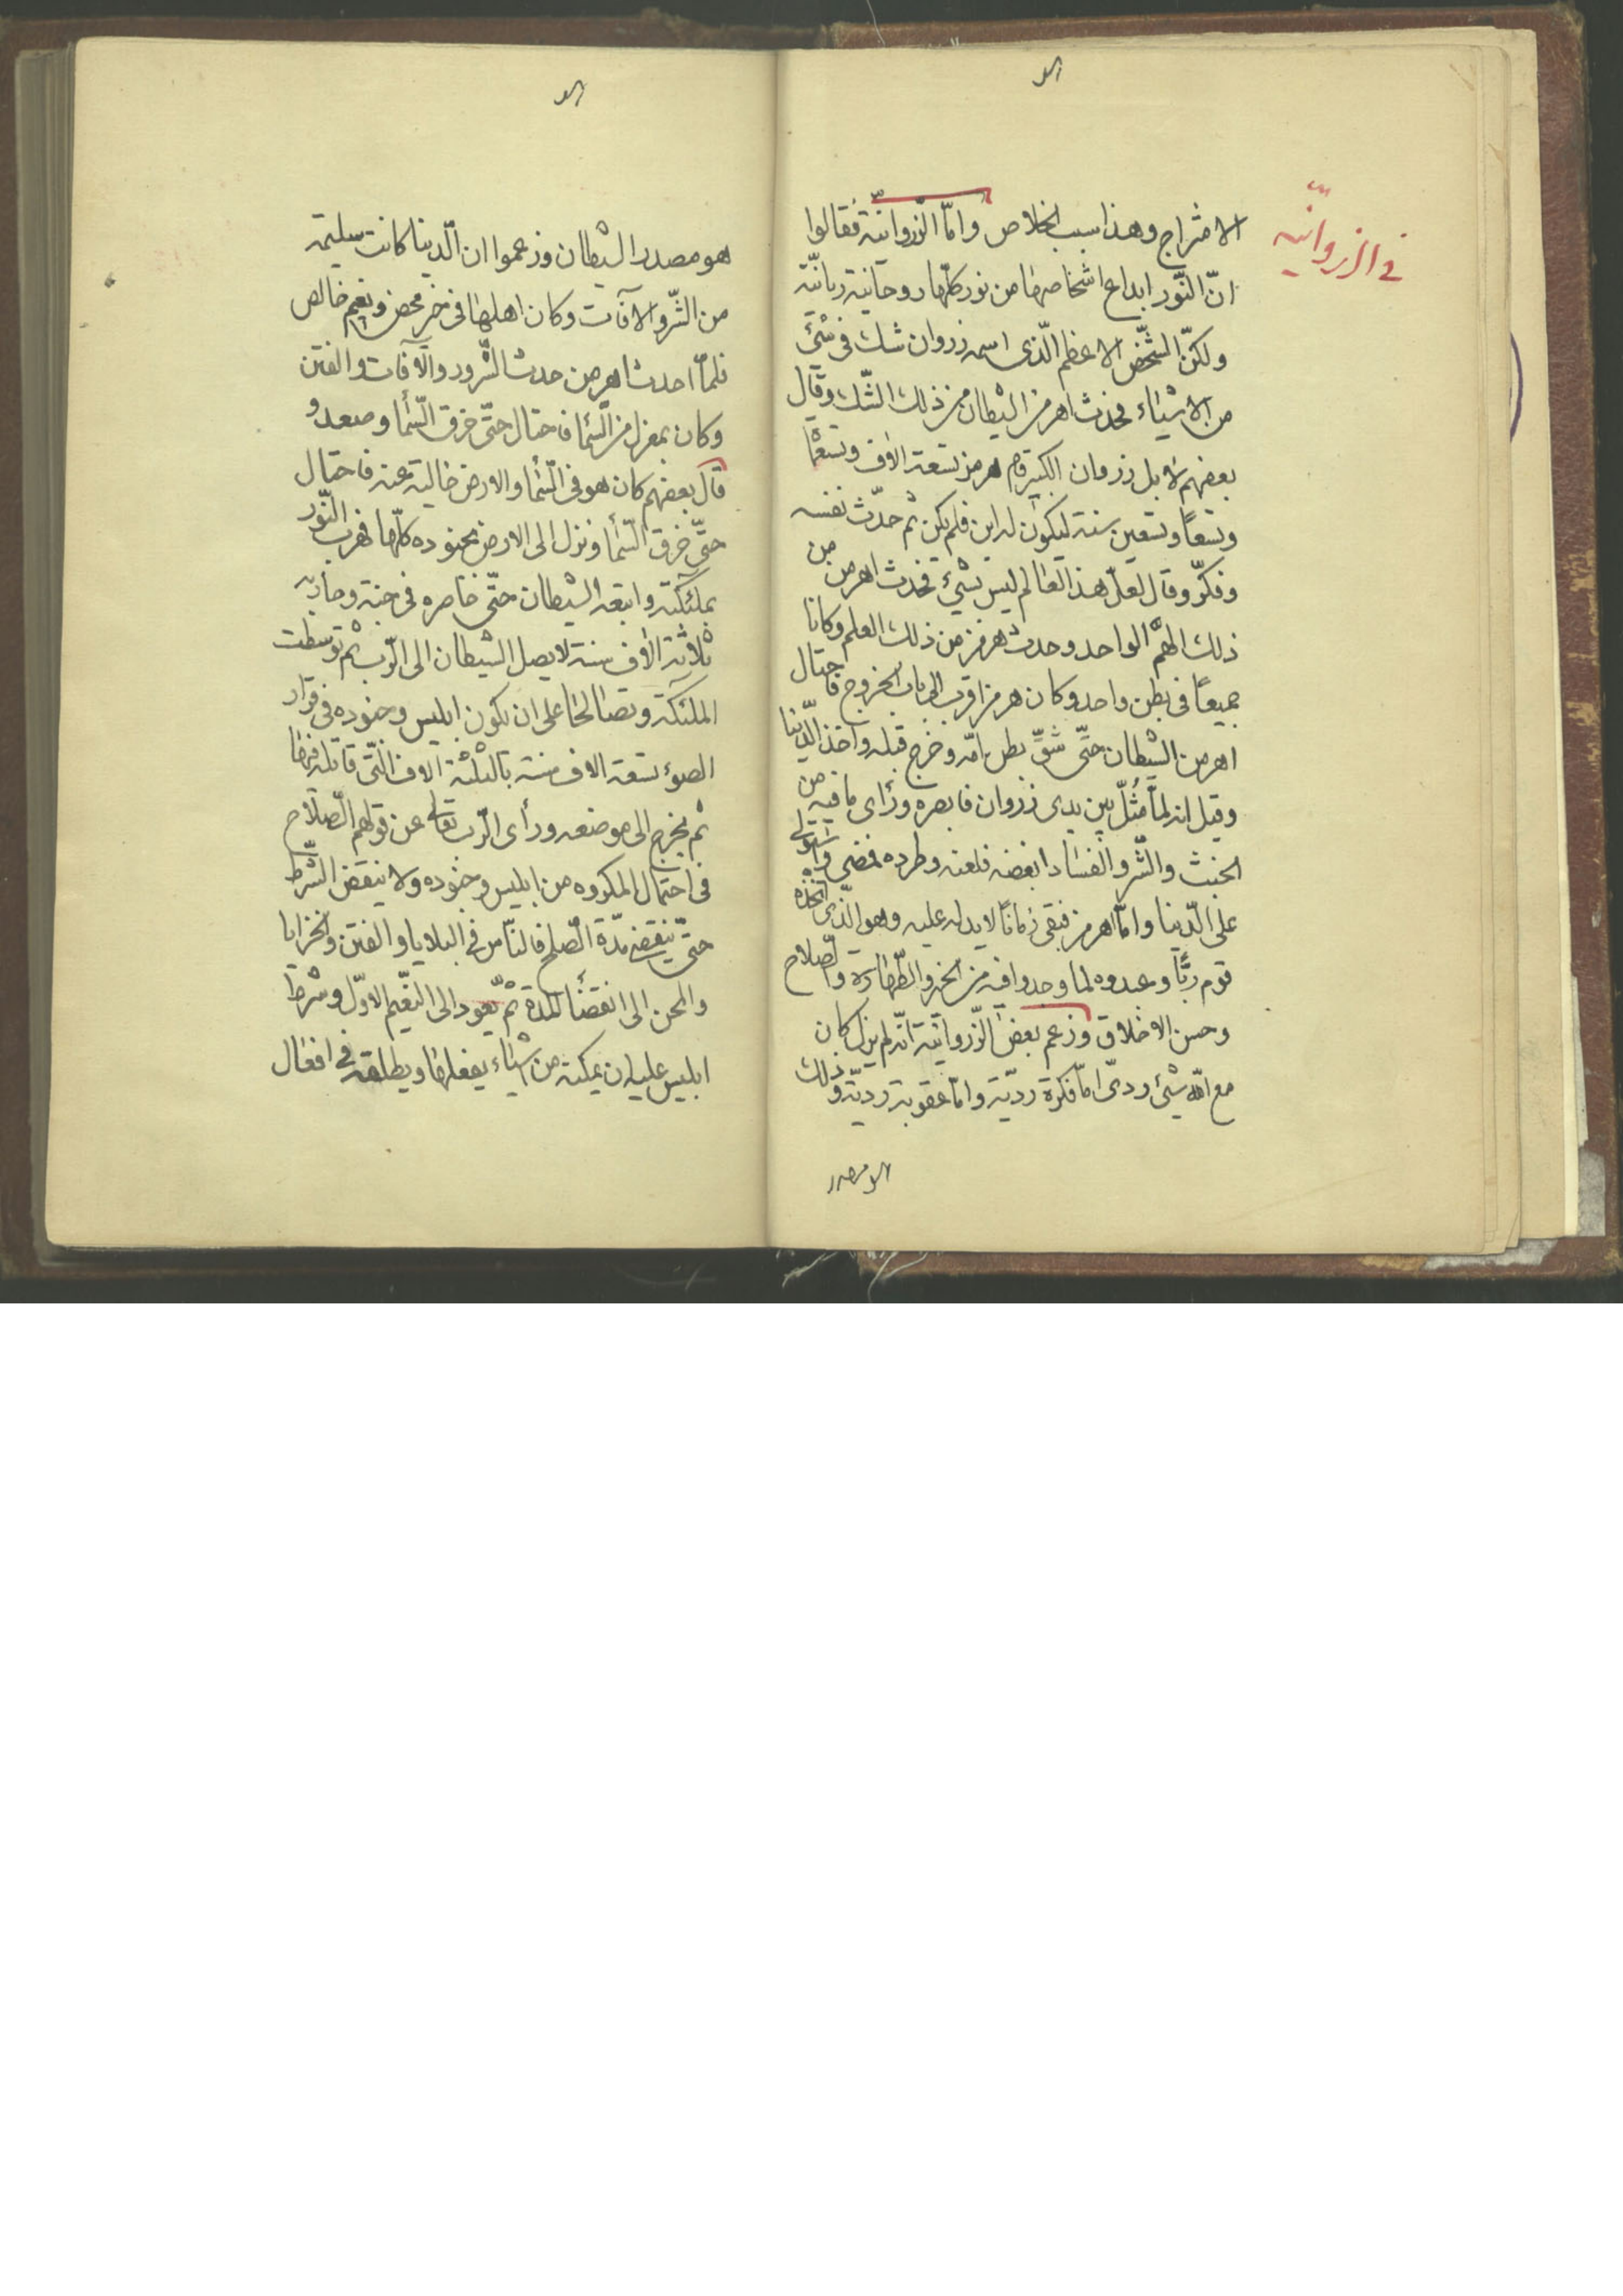 في الزروانيّه
الامتزاج وهذا سبب الخلاص وامّا الزّروانيّة فقالوا
انّ النّور ابداع اشخاصها من نور كلّها روحانية ربانيّة
ولكنّ الشّخص الاعظم الّذى اسمه زروان شك فى شئ
من الاشياء فحدث اهرمن الشيطان من ذلك الشّك وقال
بعضهم لا بل زروان الكبير قام هرمز تسعة الاف وتسعمأ
وتسعاً وتسعين سنة ليكون له ابن فلم يكن ثم حدّث نفسه
وفكّر وقال لعلّ هذا العالم ليس بشيء فحدث اهرمن من
ذلك الهمّ الواحد وحدث هرمز من ذلك العلم وكانا
جميعاً فى بطن واحد وكان هرمز اقرب الى باب الخروج فاحتال
اهرمن الشيطان حتّى شقّ بطن امّه وخرج قبله واخذ الدّنيا
وقيل انه لمّا مُثّل بين يدى زروان فابصره ورأى ما فيه من
الخبث والشّر والفساد ابغضه فلعنه وطرده فمضى واستولى
على الدّنيا وامّا هرمز فبقى زماناً لا يد له عليه وهو الّذى اتخذه
قوم ربًّا وعبدوه لما وجدوا فيه من الخير والطّهارة والصّلاح
وحسن الاخلاق وزعم بعض الزّروانيّة انّه لم يزل كان
مع اللّه شئ ردىّ امّا فكرة رديّة وامّا عقوبة رديّة وذلك
هو مصدر
هو مصدر الشيطان وزعموا ان الّدنيا كانت سليمة
من الشّر والآفات وكان اهلها فى خير محض ونعيم خالص
فلمّا احدث اهرمن حدث الشّرور والآفات والفتن
وكان بمعزل من السّمأ فاحتال حتّى خرق السّمأ وصعد و
قال بعضهم كان هو فى السّمأ والارض خالية عنه فاحتال
حتّى خرق السّمأ ونزل الى الارض بجنوده كلّها فهرب النّور
بملئكته واتبعه الشيطان حتّى حاصره فى جنته وحاربه
ثلاثة الآف سنة لا يصل الشيطان الى الرّب ثم توسطت
الملئكة وتصالحا على ان يكون ابليس وجنوده فى قرار
الضوء تسعة الاف سنة بالثلثة الاف الّتى قاتله فيها
ثم يخرج الى موضعه ورأى الرّب تعالى عن قولهم الصّلاح
فى احتمال المكروه من ابليس وجنوده ولا ينقض الشّرط
حتّى ينقضى مدّة الصّلح فالنّاس فى البلايا والفتن والخزايا
والمحن الى انقضأ المدة ثم يعود الى النّعيم الاوّل وشرط
ابليس عليه ان يمكنه من اشياء يفعلها ويطلقه فى افعال